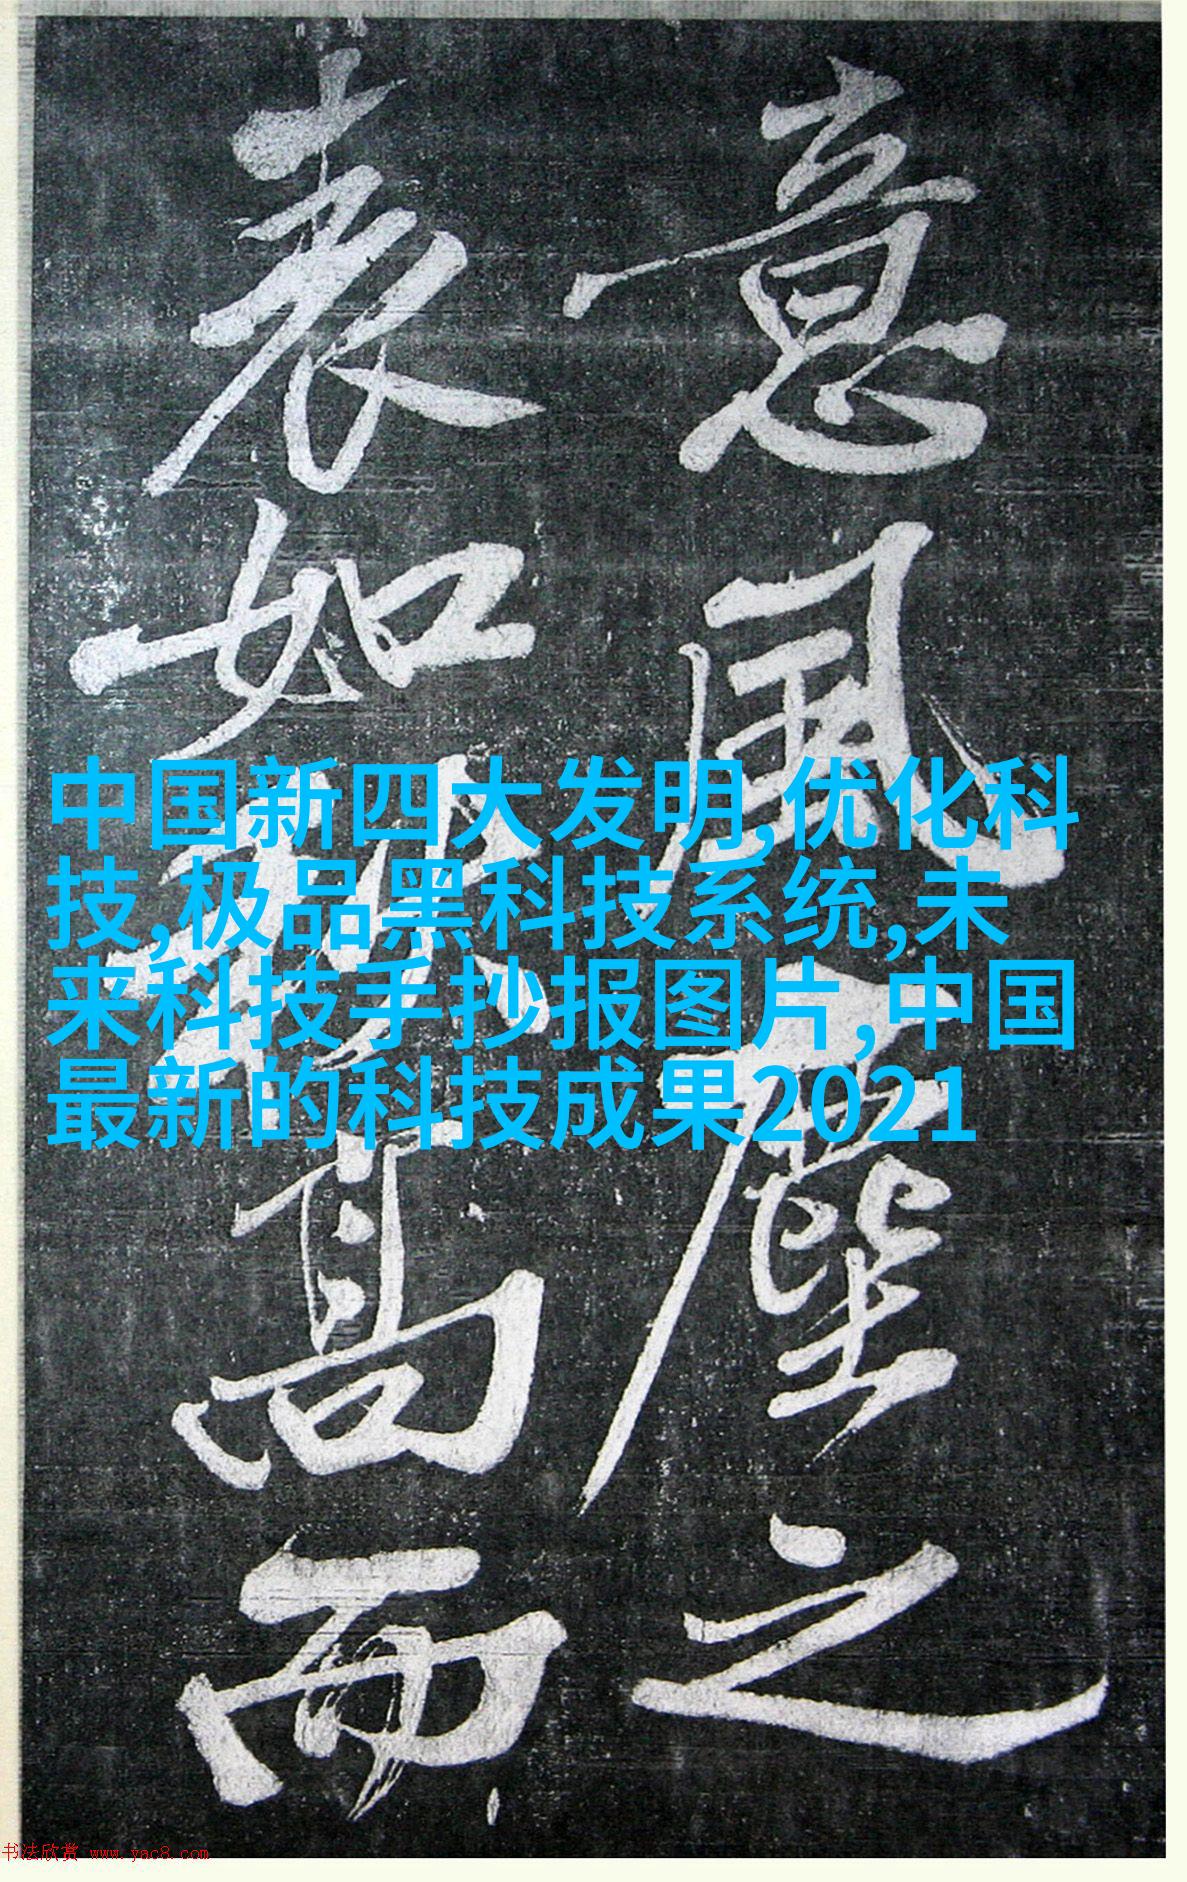 意風塵之
表如高而
中国新四大发明,优化科
技,极品黑科技系统,未
来科技手抄报图片,中国
最新的科技成果2021
书法欣赏 www.yac8.com